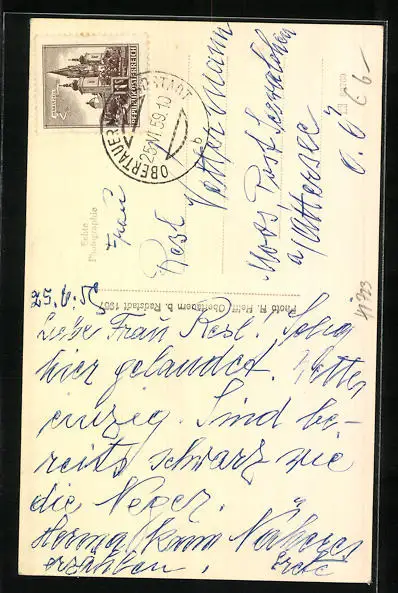 REPUBLIK ÖSTERREICH
OBERTAUERN
RADSTADT
25.VI.59.10
b
Echte
Photographie
Frau
Resl Vettermann
Moos Post Seewalchen
a/Attersee
O.Ö.
6-
Photo H. Hoffl, Obertauern b. Radstadt 1967
25.6.59
Liebe Frau Resl! Schon
hier gelandet. Wetter
einzig. Sind be-
reits schwarz wie
die Neger.
Herma kann Näheres
erzählen.